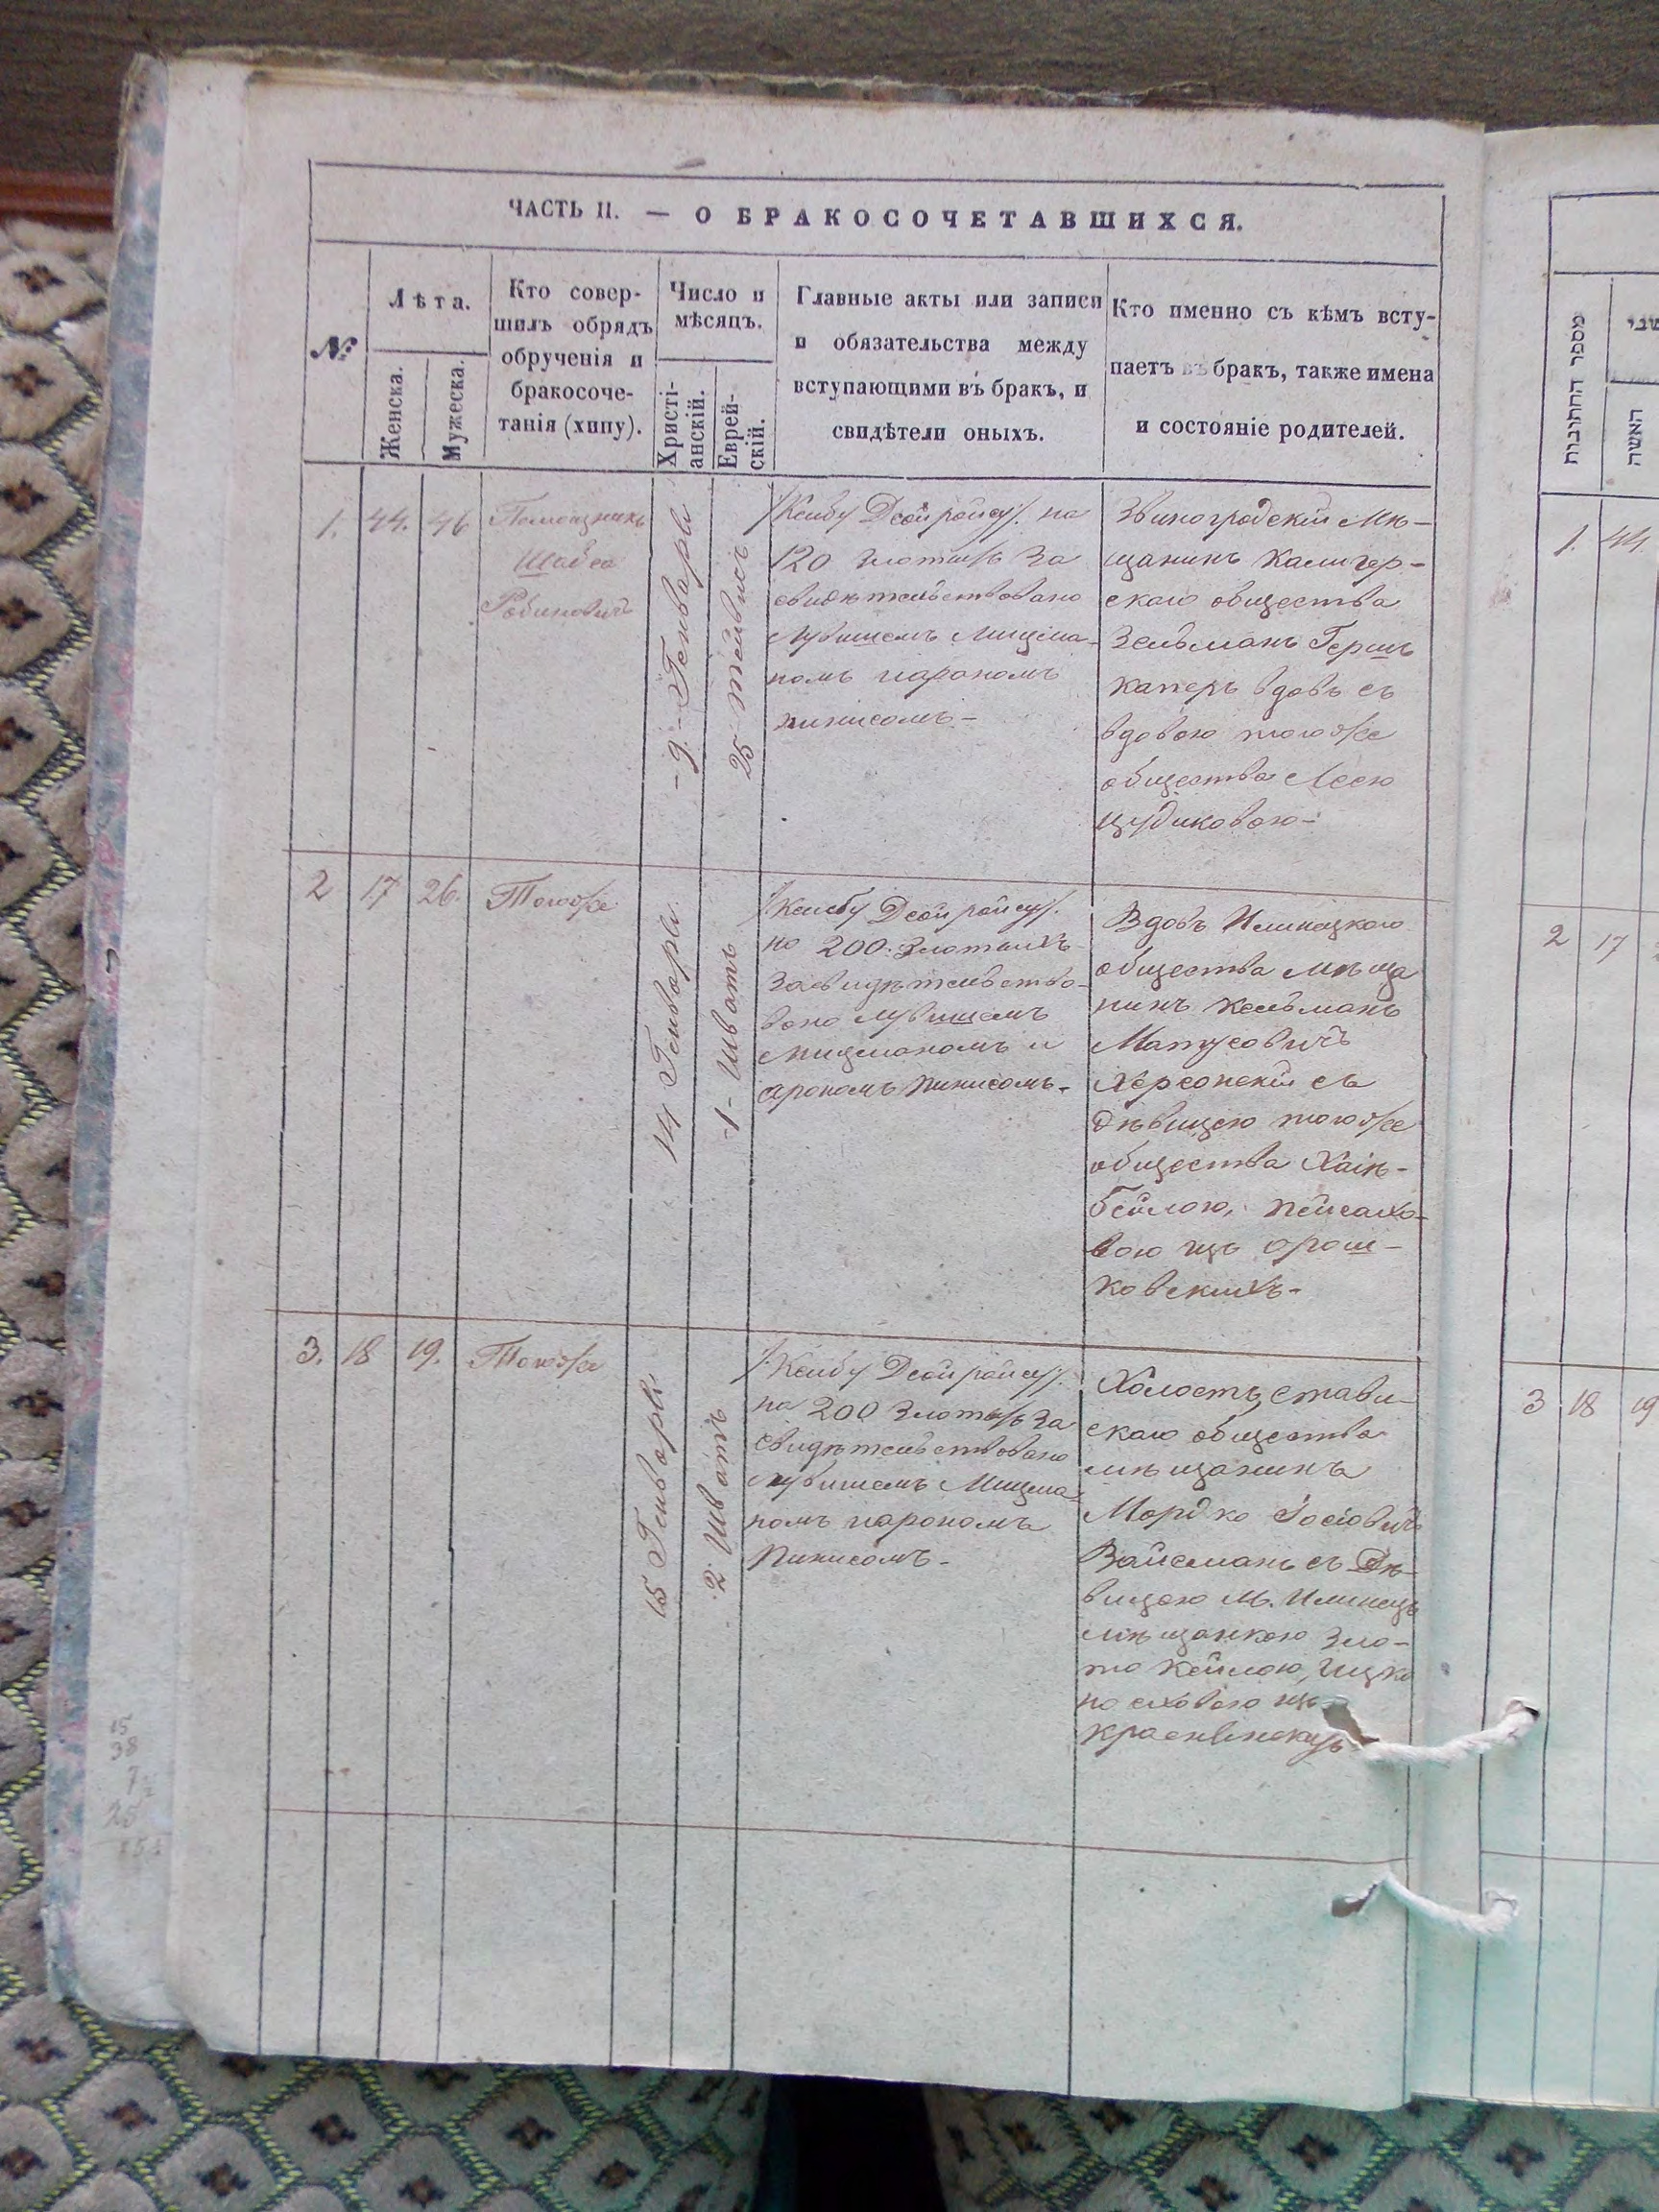 ЧАСТЬ II. — О БРАКОСОЧЕТАВШИХСЯ.
№
Лѣта.
Женска.
Мужеска.
Кто совер-
шилъ обрядъ
обрученія и
бракосоче-
танія (хипу).
Число и
мѣсяцъ.
Христі-
анскій.
Еврей-
скій.
Главные акты или записи
и обязательства между
вступающими въ бракъ, и
свидѣтели оныхъ.
Кто именно съ кѣмъ всту-
паетъ въ бракъ, также имена
и состояніе родителей.
1.
44.
46
Помощникъ
Шабса
Рабиновичъ
- 9 - Генваря
25 тейвисъ
/Ксибу Дсойройсу/. на
120 злотыхъ за
свидѣтельствовано
Мицма-
номъ иарономъ
пинисомъ -
Звиногродскій Мѣ-
щанинъ Калигор-
скаго общества
Зельманъ Гершъ
вдовъ съ
вдовою тогоже
общества Леею
Цудиковою -
2
17
26.
Тогоже
14 Генваря
1 - Шватъ
/Ксибу Дсойройсу/.
на 200. Злотыхъ
Засвидѣтельство-
вано
мицманомъ и
арономъ Пинисомъ -
Вдовъ Илинецкого
общества Мѣща
нинъ Кельманъ
Матусовичъ
Херсонскій съ
дѣвицею тогоже
общества Хаін-
бейлою, пейсахо-
вою изъ ораш-
ковскихъ -
3.
18
19.
Тогоже
15 Генваря
2 Шватъ
/Ксибу Дсойройсу/.
на 200 Злотыхъ За
свидѣтельствовано
Мицма-
номъ иарономъ
Пинисомъ -
Холостъ, стави-
скаго общества
мѣщанинъ
Мордко Іосіовичъ
Вайсманъ съ Дѣ-
вицею М. Илинецъ
мѣщанкою Зло-
то Кейлою, Ицко
изъ
15
38
25
מספר החתונות
האשה
1.
44
2
17
3
18
19